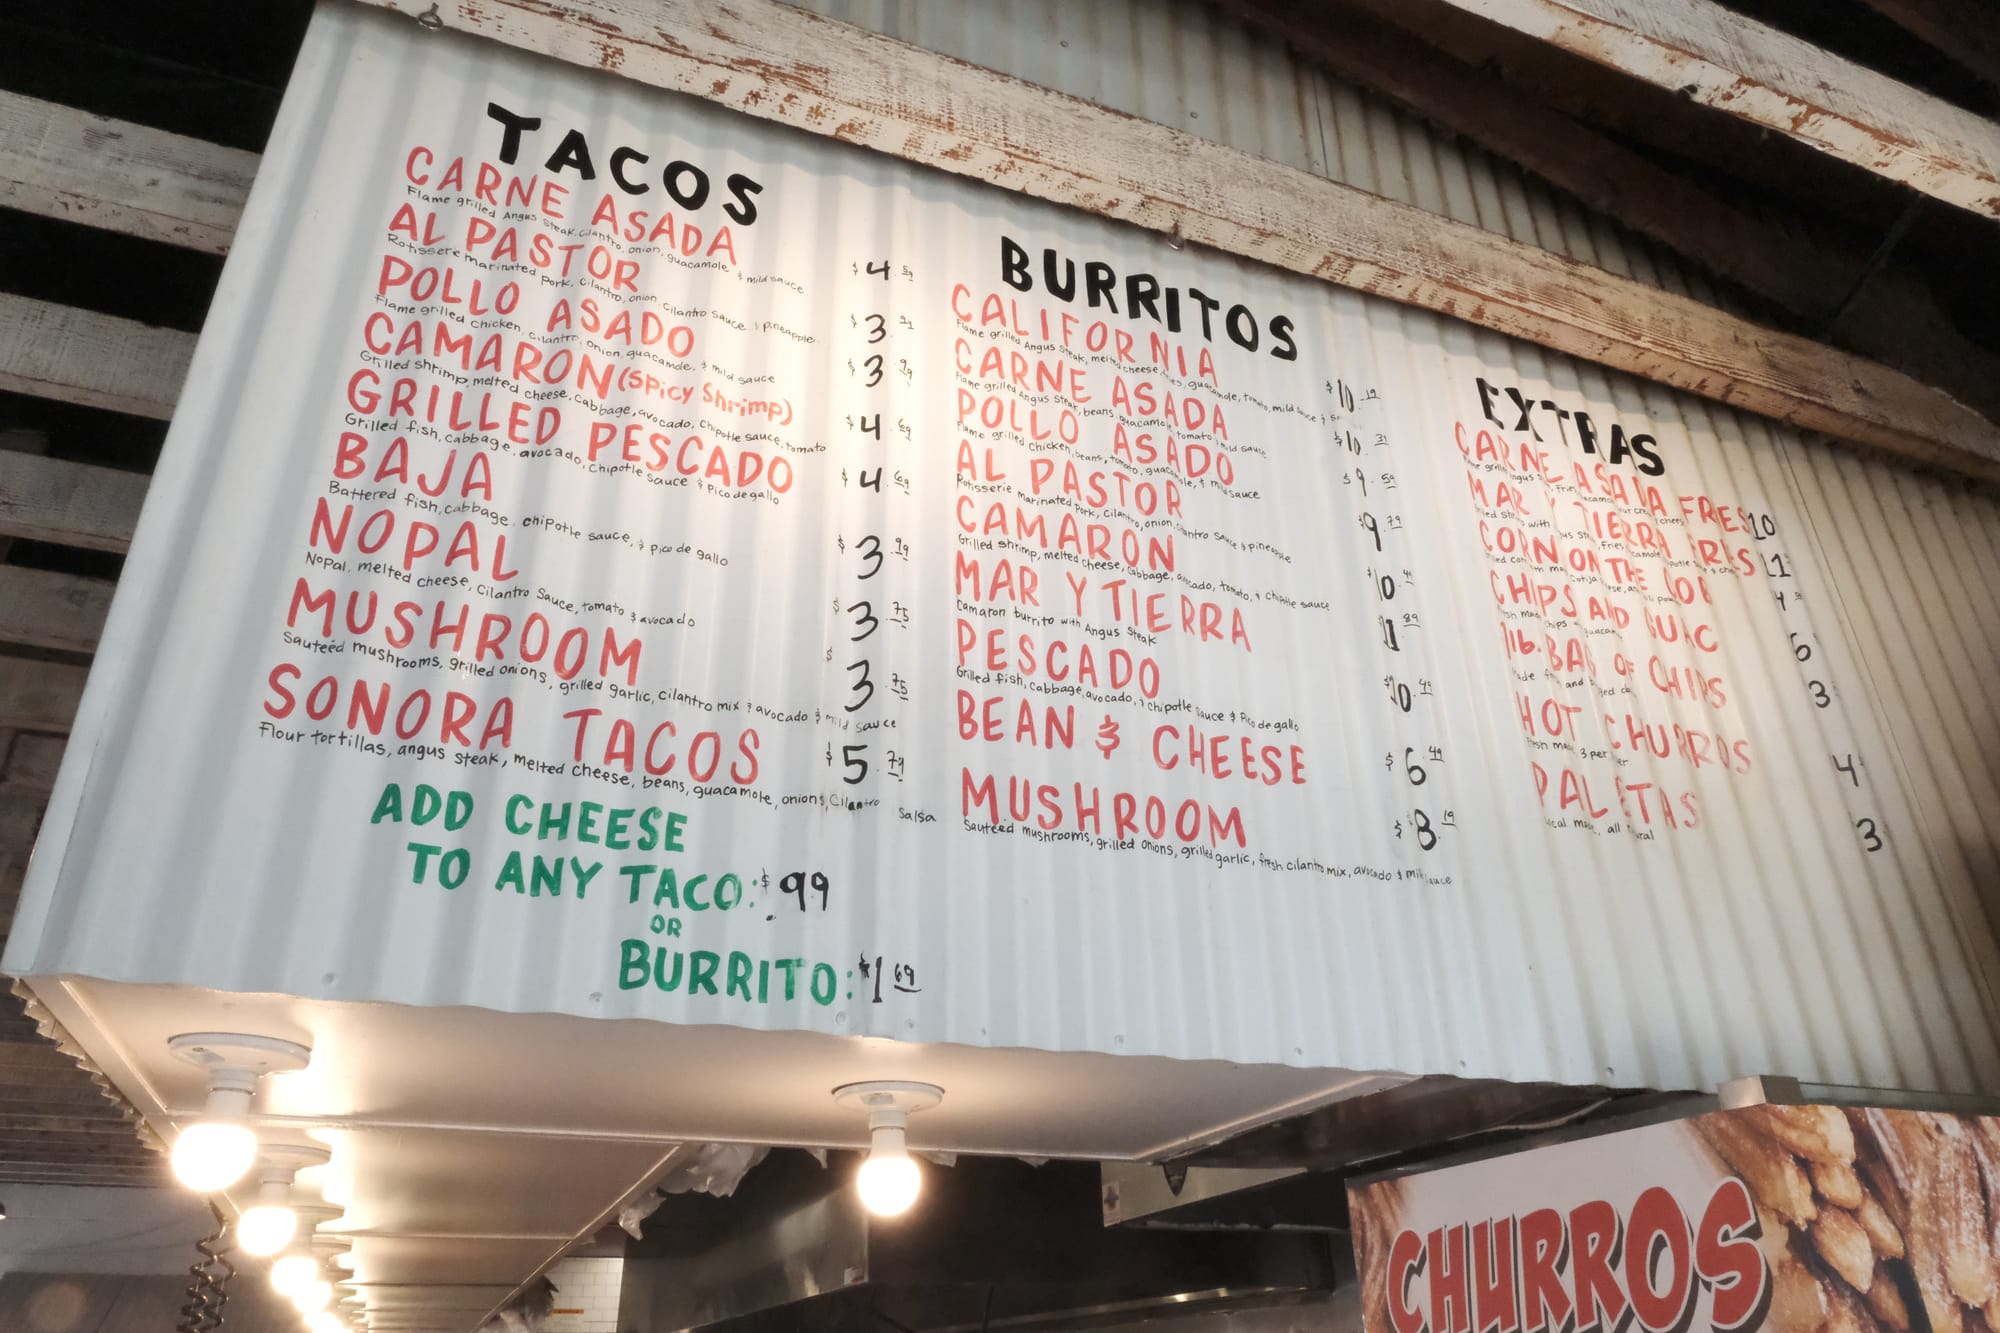 TACOS
CARNE ASADA $4.59
Flame grilled Angus Steak, cilantro, onion, guacamole & mild sauce
AL PASTOR $3.99
Rotisserie marinated pork, cilantro, onion, cilantro sauce & pineapple
POLLO ASADO $3.99
Flame grilled chicken, cilantro, onion, guacamole, & mild sauce
CAMARON (Spicy Shrimp) $4.69
Grilled shrimp, melted cheese, cabbage, avocado, chipotle sauce, tomato
GRILLED PESCADO $4.69
Grilled fish, cabbage, avocado, chipotle sauce & Pico de gallo
BAJA $3.99
Battered fish, cabbage, chipotle sauce, & pico de gallo
NOPAL $3.75
Nopal, melted cheese, cilantro Sauce, tomato & avocado
MUSHROOM $3.75
Sauteéd mushrooms, grilled onions, grilled garlic, cilantro mix & avocado & mild sauce
SONORA TACOS $5.79
Flour tortillas, angus steak, melted cheese, beans, guacamole, onions, Cilantro Salsa
ADD CHEESE
TO ANY TACO: $.99
OR
BURRITO: $1.69
BURRITOS
CALIFORNIA $10.19
Flame grilled Angus Steak, melted cheese, fries, guacamole, tomato, mild sauce &
CARNE ASADA $10.
Flame grilled Angus Steak, beans, guacamole tomato & mild sauce
POLLO ASADO $9.59
Flame grilled chicken, beans, tomato, guacamole, & mild sauce
AL PASTOR $9.79
Rotisserie marinated pork, cilantro, onion, cilantro sauce & pineapple
CAMARON $10.
Grilled shrimp, melted cheese, cabbage, avocado, tomato, & chipotle sauce
MAR Y TIERRA 11.89
Camaron burrito with Angus Steak
PESCADO $10.49
Grilled fish, cabbage, avocado, & chipotle sauce & Pico de gallo
BEAN & CHEESE $6.49
MUSHROOM $8.19
Sauteed mushrooms, grilled onions, grilled garlic, fresh cilantro mix, avocado &
EXTRAS
CARNE ASADA FRIES 10
MAR Y TIERRA FRIES 11
CORN ON THE COB 4
CHIPS AND GUAC 6
1lb. BAG OF CHIPS 3
HOT CHURROS 4
Fresh made, 3 per
PALETAS 3
CHURROS